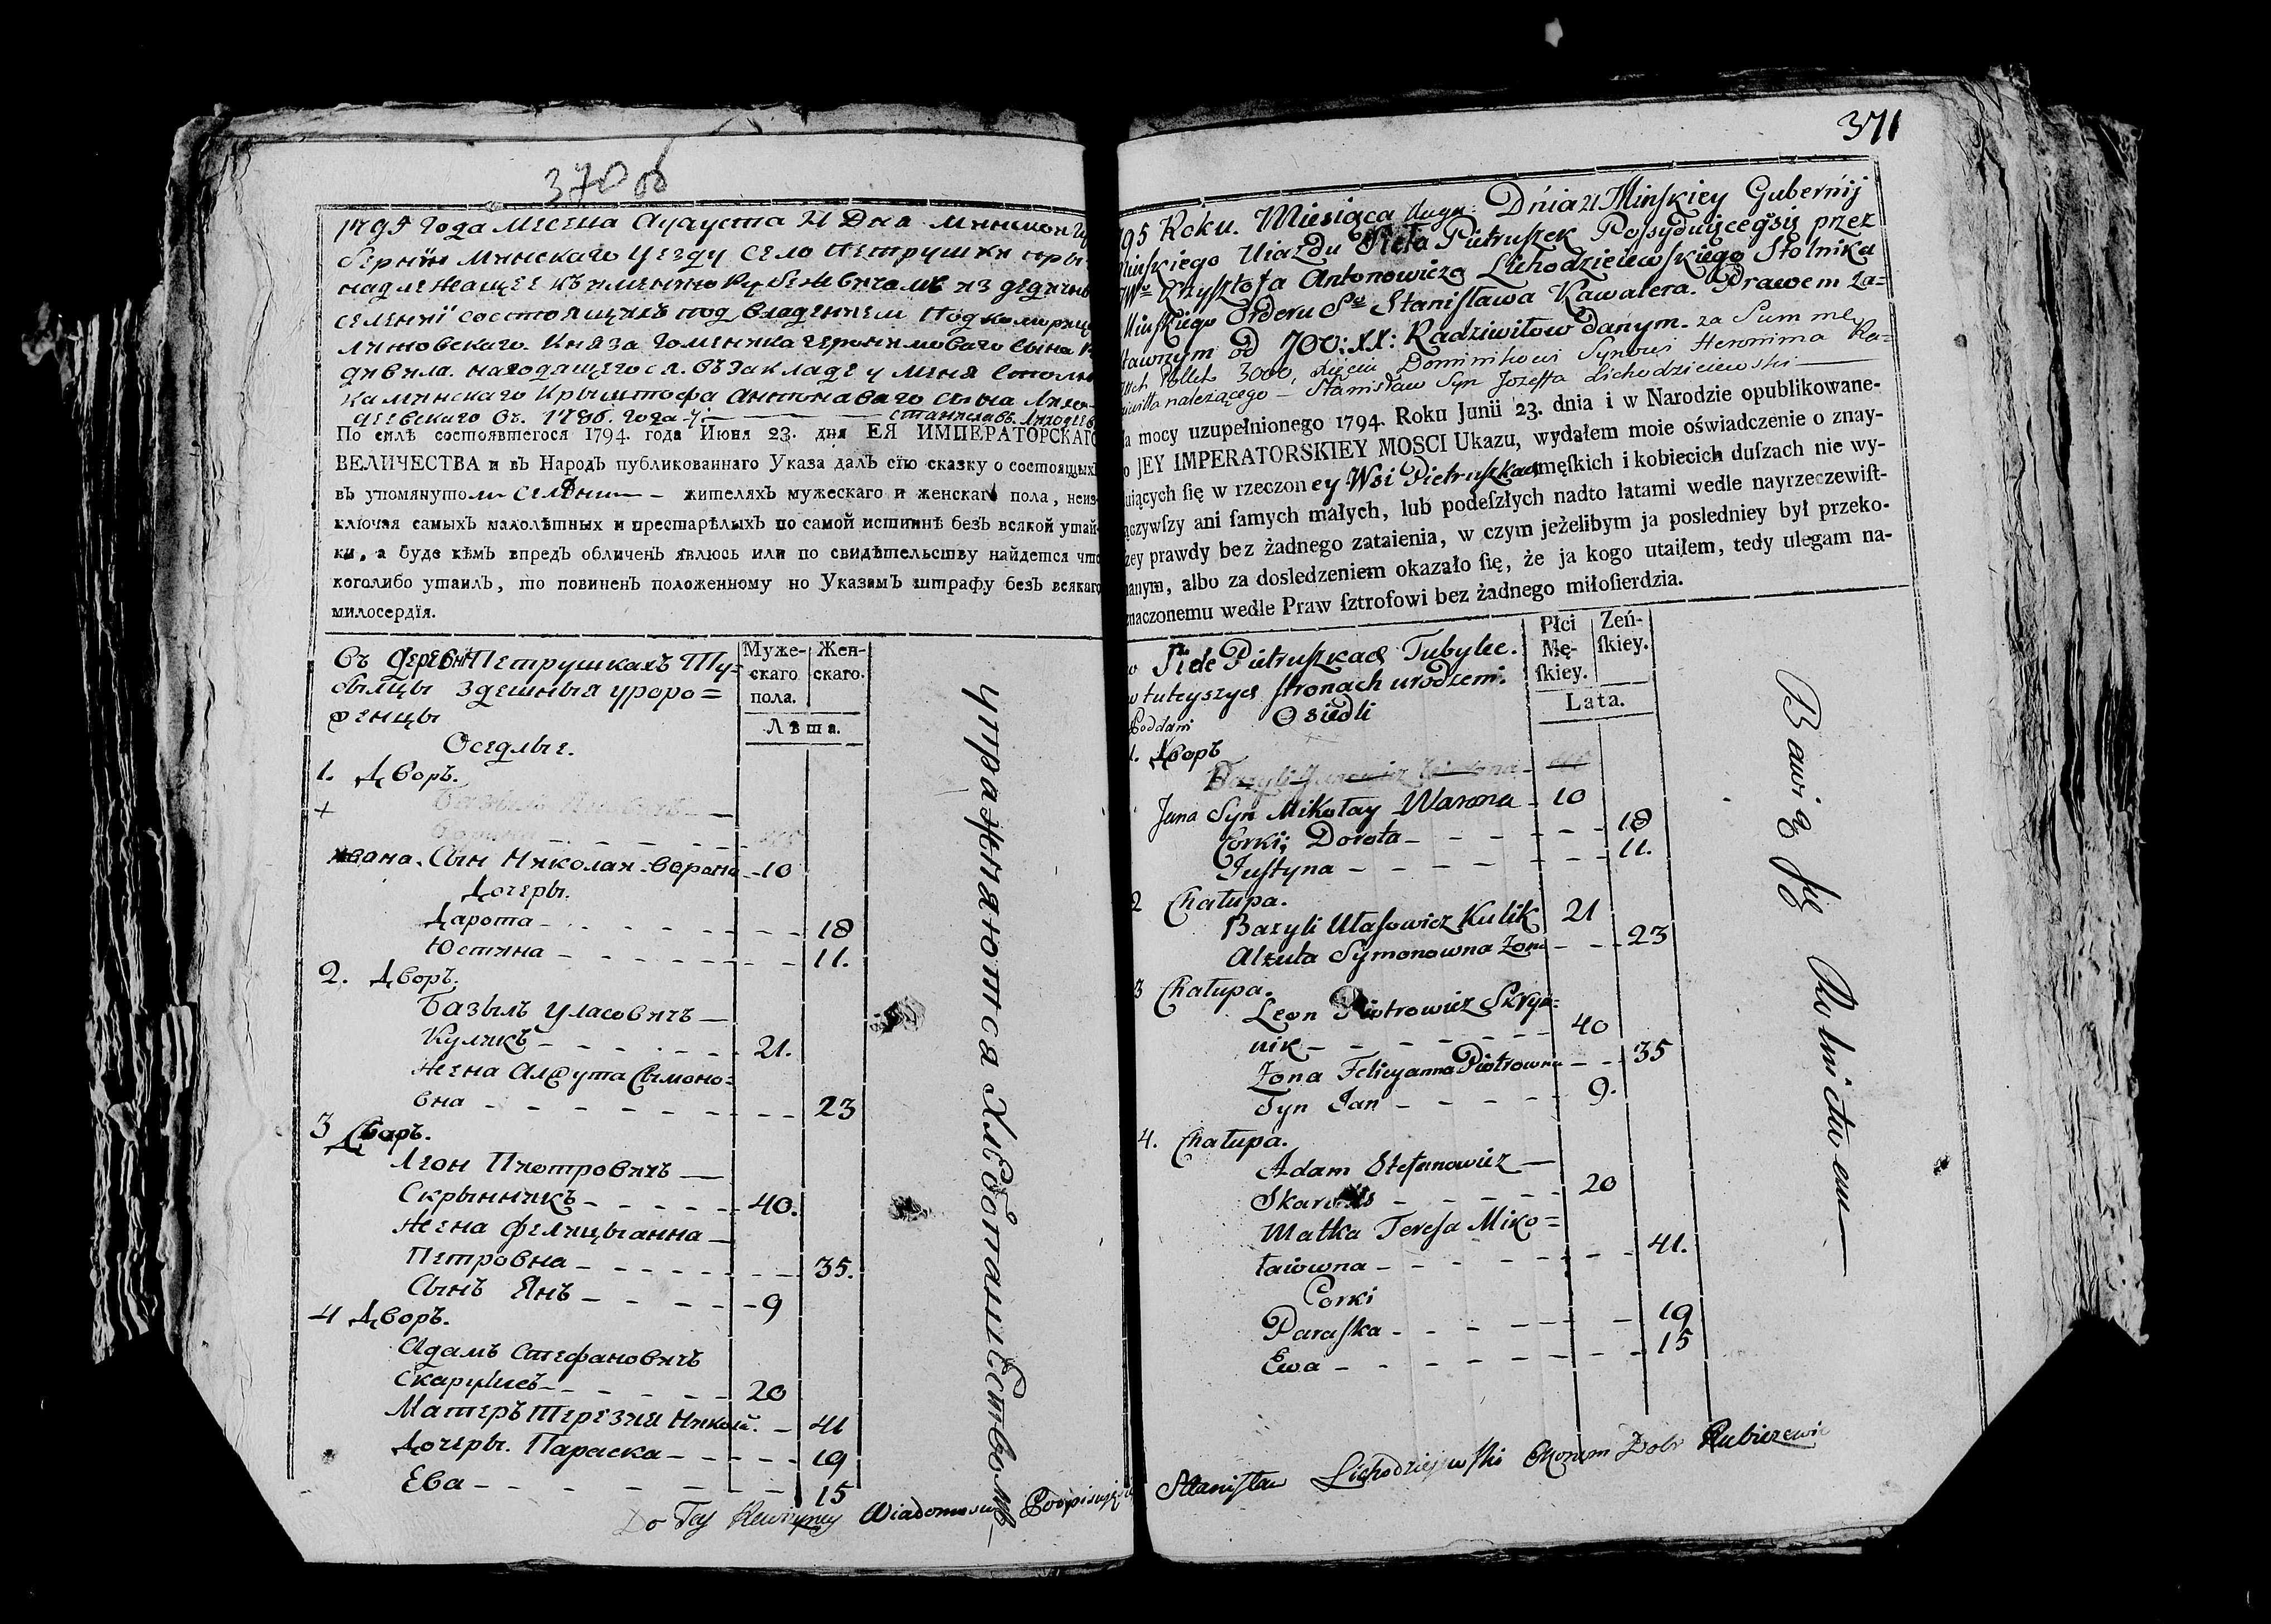 370 об
1795 Года Месеца Ауауста 21 Дня Минской Гу
бернїи Минскаго Уезду село Петрушки при
надлежащее къ имению Кубежвичамъ из дедично
селенкї состоящихъ под владением Подкоморицо
Литовскаго Княза Доменика Героримоваго Сына Ра
дивила. находящегося. въ закладе у меня Столн
ка Минскаго Крыштофа Антонаваго Сына Лихо
деевскаго Съ. 1786. Года
станиславъ. Лиходеев
По силѣ состоявшегося 1794. года Июня 23. дня ЕЯ ИМПЕРАТОРСКАГО
ВЕЛИЧЕСТВА и въ НародЪ публикованнаго Указа далЪ сїю сказку о состоящыхЪ
въ упомянутом селении — жителяхЪ мужескаго и женскаго пола, неиз
ключая самыхЪ малолѣтных и престарѣлыхЪ по самой истиннѣ безЪ всякой утай
ки, а буде кѣмЪ впредЪ обличенЪ явлюсь или по свидѣтельству найдется что
коголибо утаилЪ, то повиненЪ положенному по УказамЪ штрафу безЪ всякаго
милосердїя.
Муже-
скаго
пола.
Жен-
скаго.
Лѣта.
Въ деревни Петрушкахъ Ту=
былцы здешныя уроро=
денцы
Оседлые.
1. Дворъ.
+
Ивана. Сын Николай. Ворона - 10
Дочеры.
Дарота - 18
Юстина - 11.
2. Дворъ.
Базыль Уласовичъ —
Куликъ - 21.
Жена Алжута Сымоно=
вна - 23
3 Дворъ.
Леон Пиотровичъ —
Скрынникъ - 40.
Жена Фелицыанна —
Петровна - 35.
Сынъ Янъ - 9
4 Дворъ.
Адамъ Стефановичъ
20
Матеръ Терезия Никола. - 41
Дочеры. Параска - 19
Ева - 15
упражняются Хлебопашествомъ
Do Tey Rewizyiney Wiadomosci Podpisuję się
371
795 Roku. Miesiąca Augu: Dńia 21 Minskiey Guberńij
Minskiego Uiazdu Sieła Pietruszek Possyduiącegosię przez
JWo Krzysztofa Antonowicza Lichodzieiewskiego Stolnika
Minskiego Orderu So Stanisława Kawalera. Prawem Za=
stawnym od JOO: XX: Radziwiłow danym. za Summę
3000, Xięciu Dominikowi Synowi Heronima Ra=
dziwiłła należącego — Stanisław Syn Jozeffa Lichodzieiewski
Na mocy uzupełnionego 1794. Roku Junii 23. dnia i w Narodzie opublikowane-
o JEY IMPERATORSKIEY MOSCI Ukazu, wydałem moie oświadczenie o znay-
duiących ſię w rzeczoney Wsi Pietruszkach męſkich i kobiecich duſzach nie wy-
łączywſzy ani ſamych małych, lub podeſzłych nadto łatami wedle nayrzeczewiſt-
zey prawdy bez żadnego zataienia, w czym jeżelibym ja posledniey był przeko-
nanym, albo za dosledzeniem okazało ſię, że ja kogo utaiłem, tedy ulegam na-
znaczonemu wedle Praw ſztrofowi bez żadnego miłoſierdzia.
Płci
Mę-
ſkiey.
Zeń-
ſkiey.
Lata.
w Siele Pietruszkach Tubylce.
w tuteyszych stronach urodzeni.
Poddani
Osiedli
1. Дворъ
Jana Syn Mikołay Warona - 10
Corki; Dorota - 18
Justyna - 11.
2 Chałupa.
Bazyli Ułasowicz Kulik 21
Alżuta Symonowna Żona - 23
3 Chałupa.
Leon Piotrowicz Skryn=
nik - 40
Żona Felicyanna Piotrowna - 35
Syn Jan - 9.
4. Chałupa.
Adam Stefanowicz —
20
Matka Teresa Miko=
łaiowna - 41.
Corki
Paraska - 19
Ewa - 15
Bawią się Rolnictwem
Stanisław Lichodziejewski Ekonom Dobr Kubiczewic